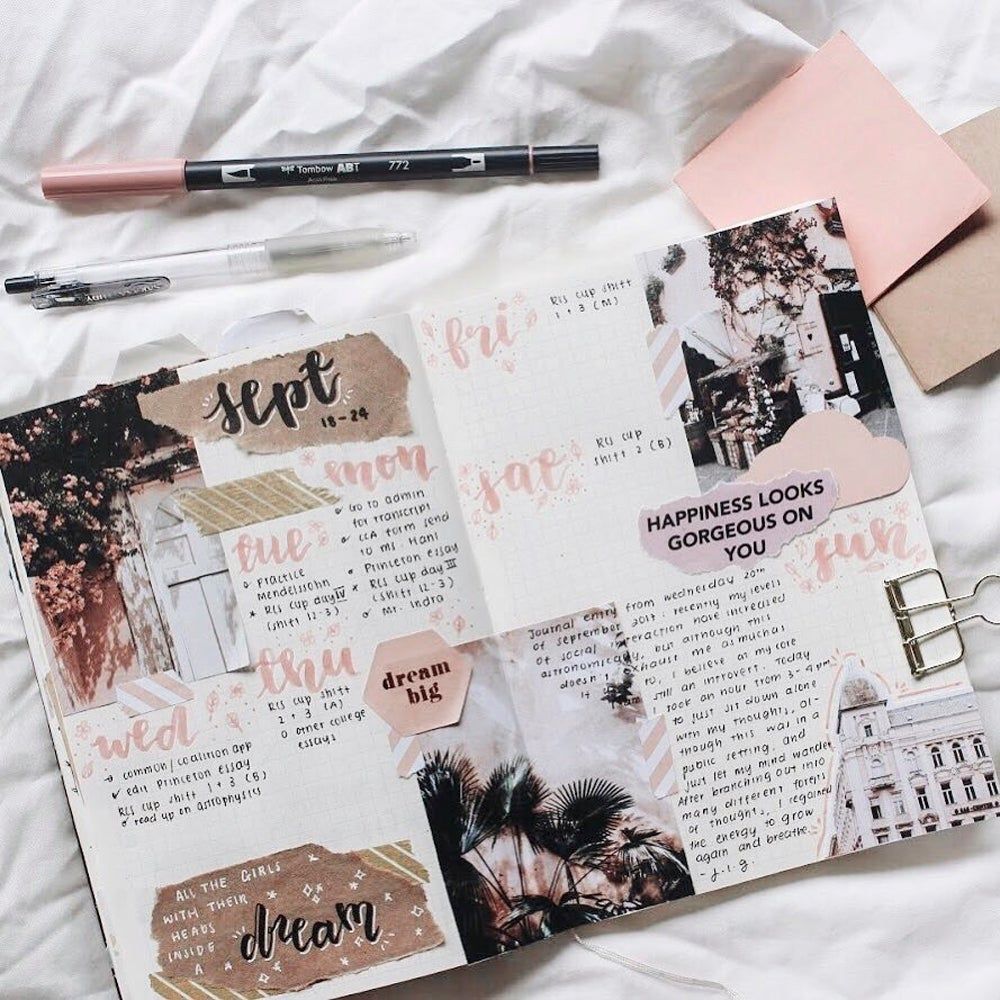 Tombow ABT 772
sept
18-24
mon
Go to admin
for transcript
CCA form send
to ms. Hani
Princeton essay
RCS cup day III
(shift 2-3)
Mr. Indra
tue
Practice
Mendelssohn
RCS cup day IV
(shift 2-3)
wed
common/coalition app
edit Princeton essay
RCS cup shift 1+3 (B)
read up on astrophysics
thu
RCS cup shift
2+3 (A)
other college
essays
dream
big
ALL THE GIRLS
WITH THEIR
HEADS
INSIDE
A
dream
fri
RCS cup shift
1+3 (M)
sat
RCS cup
shift 2 (B)
HAPPINESS LOOKS
GORGEOUS ON
YOU
sun
Journal entry from wednesday 20th
of september 2017: recently my levels
of social interaction have increased
astronomically, but although this
doesn't exhaust me as much as
it used to, I believe at my core
I'm still an introvert. Today
I took an hour from 3-4pm
to just sit down alone
with my thoughts, al-
though this was in a
public setting, and
just let my mind wander
After branching out into
many different forests
of thoughts, I regained
the energy to grow
again and breathe.
-j.i.g.